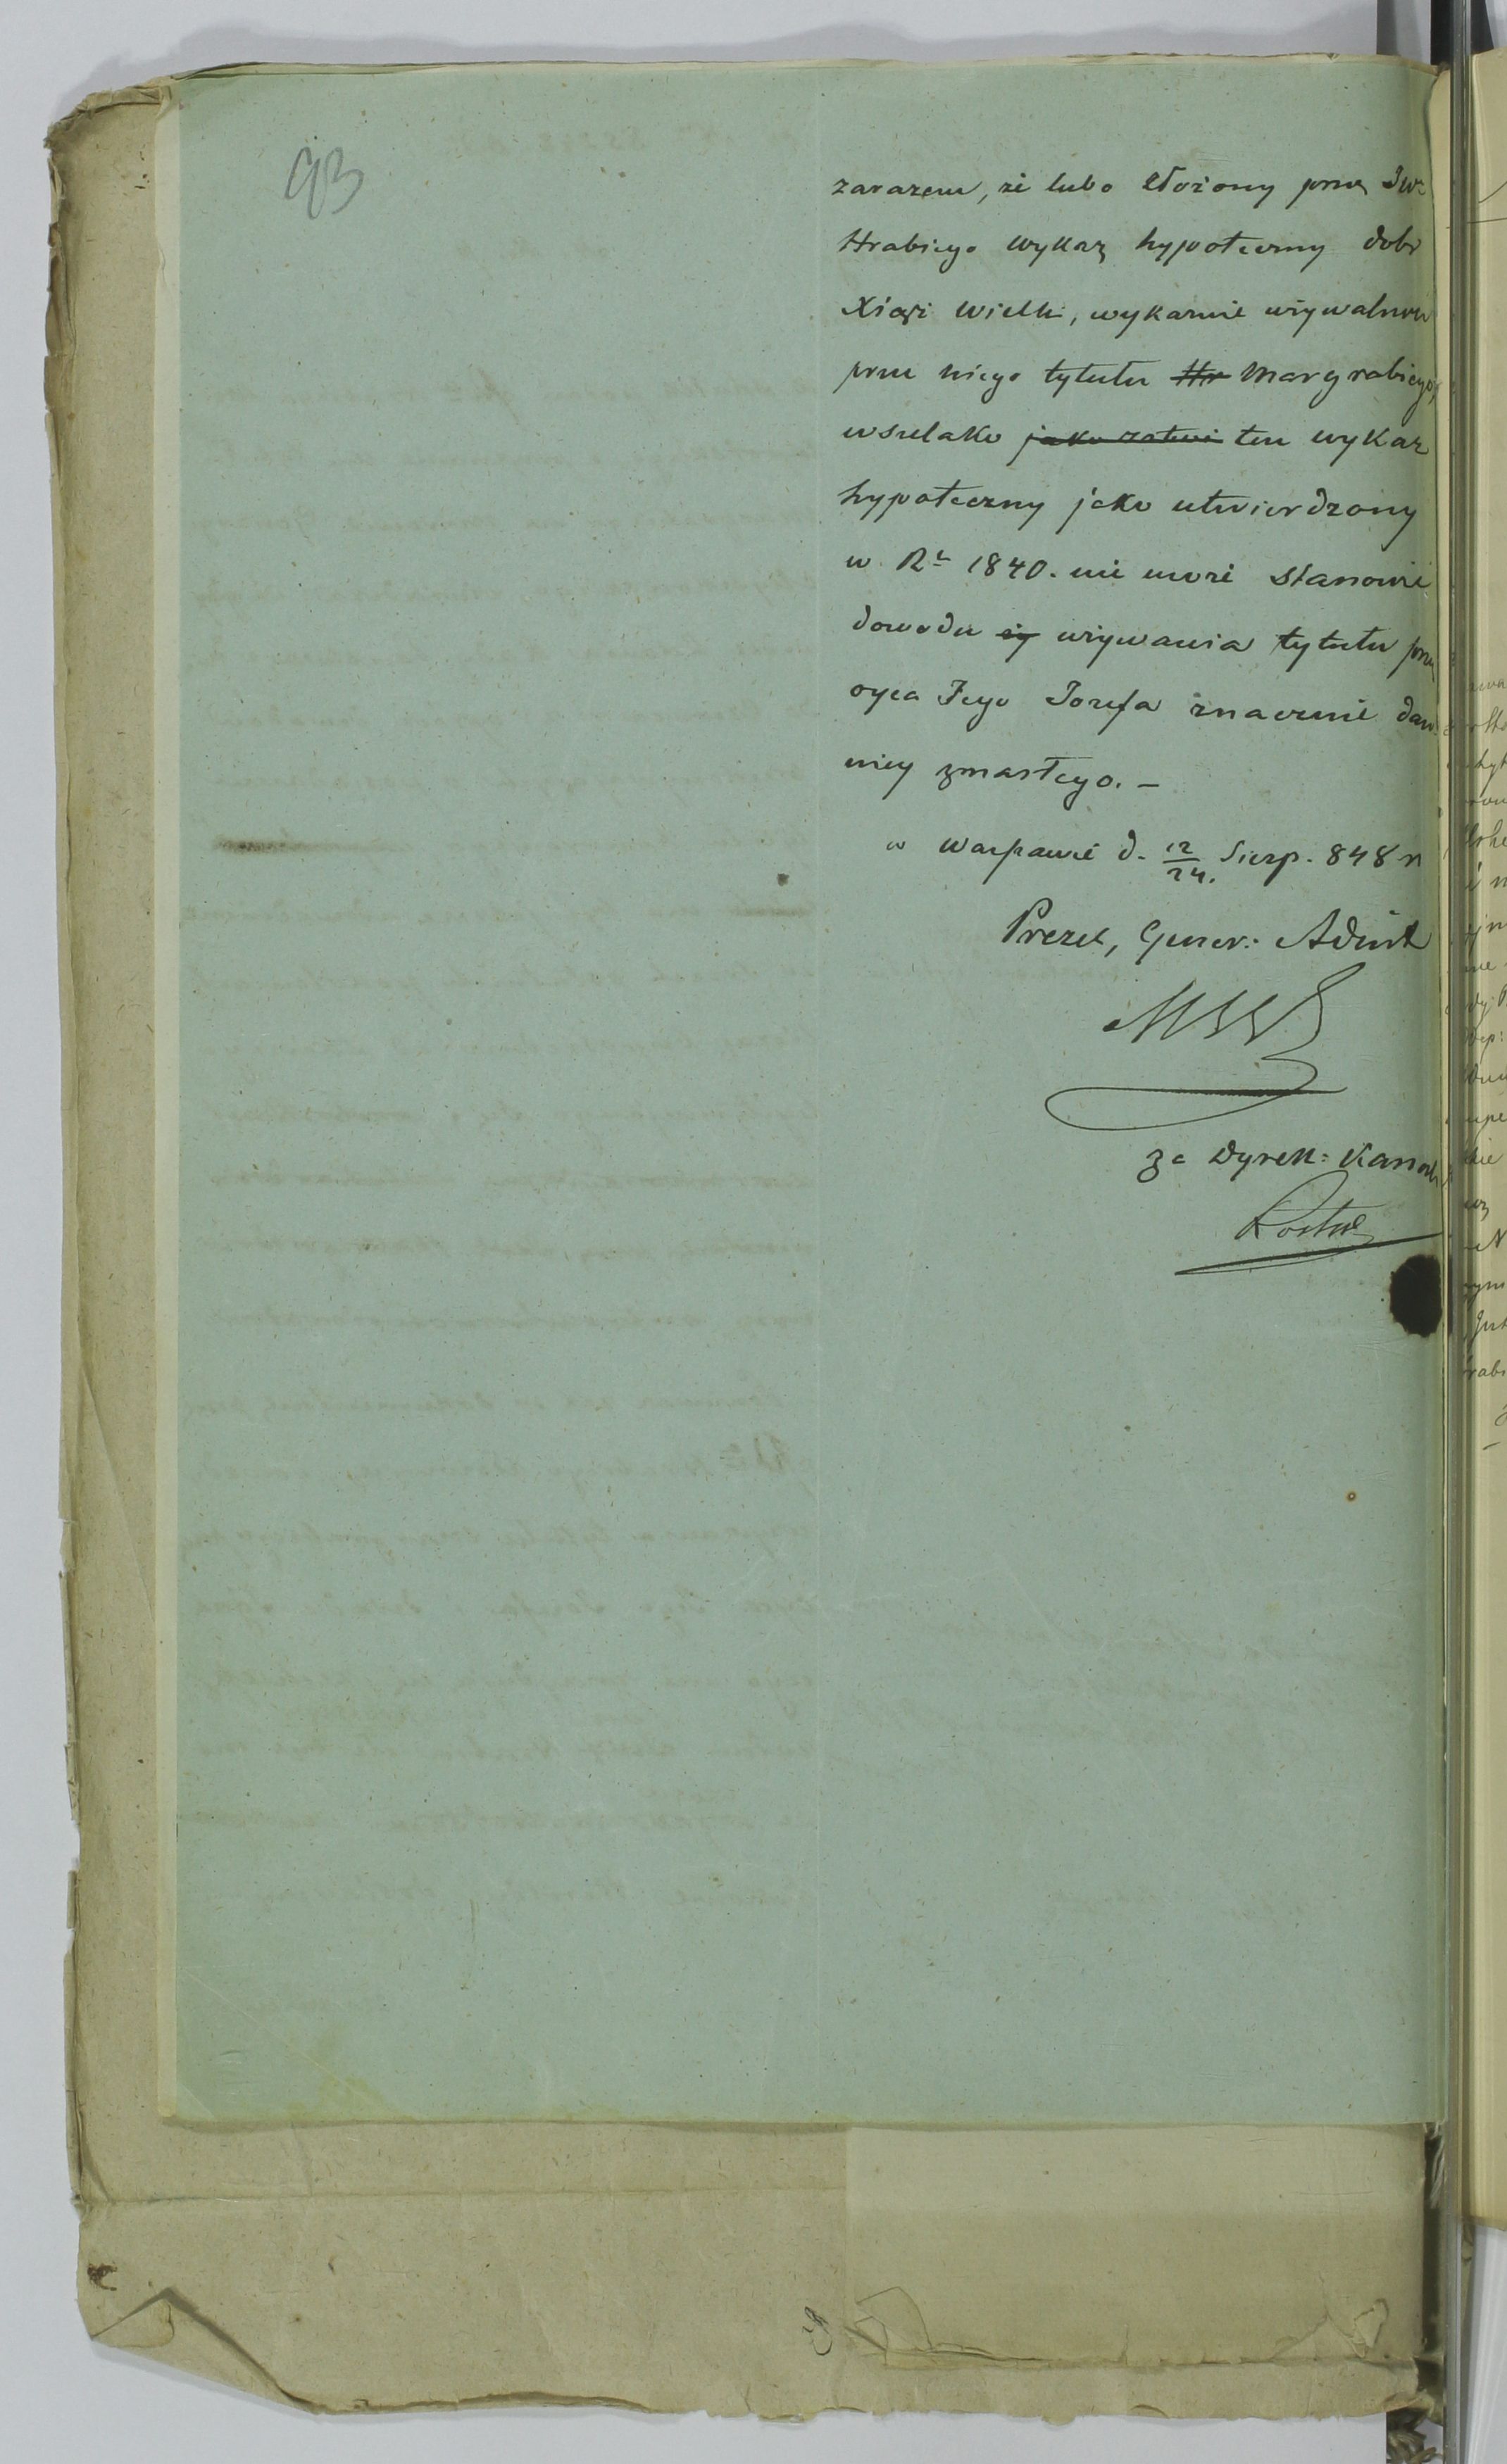 93
zarazem, że lubo złożony przez JW.
Hrabiego wykaz hypoteczny dobr
Xiąż Wielki, wykaznie używalność
przez niego tytułu Hr Margrabiego,
wszelako jako ten wykaz
hypoteczny jako utwierdzony
w Rk 1840. nie może stanowić
dowodu używania tytułu przez
oyca Jego Jozefa znacznie daw
niey zmarłego. —
w Warszawie d. 12/24. Sierp. 848 r
Prezes, Gener: Adiut
za Dyrek: Kancel